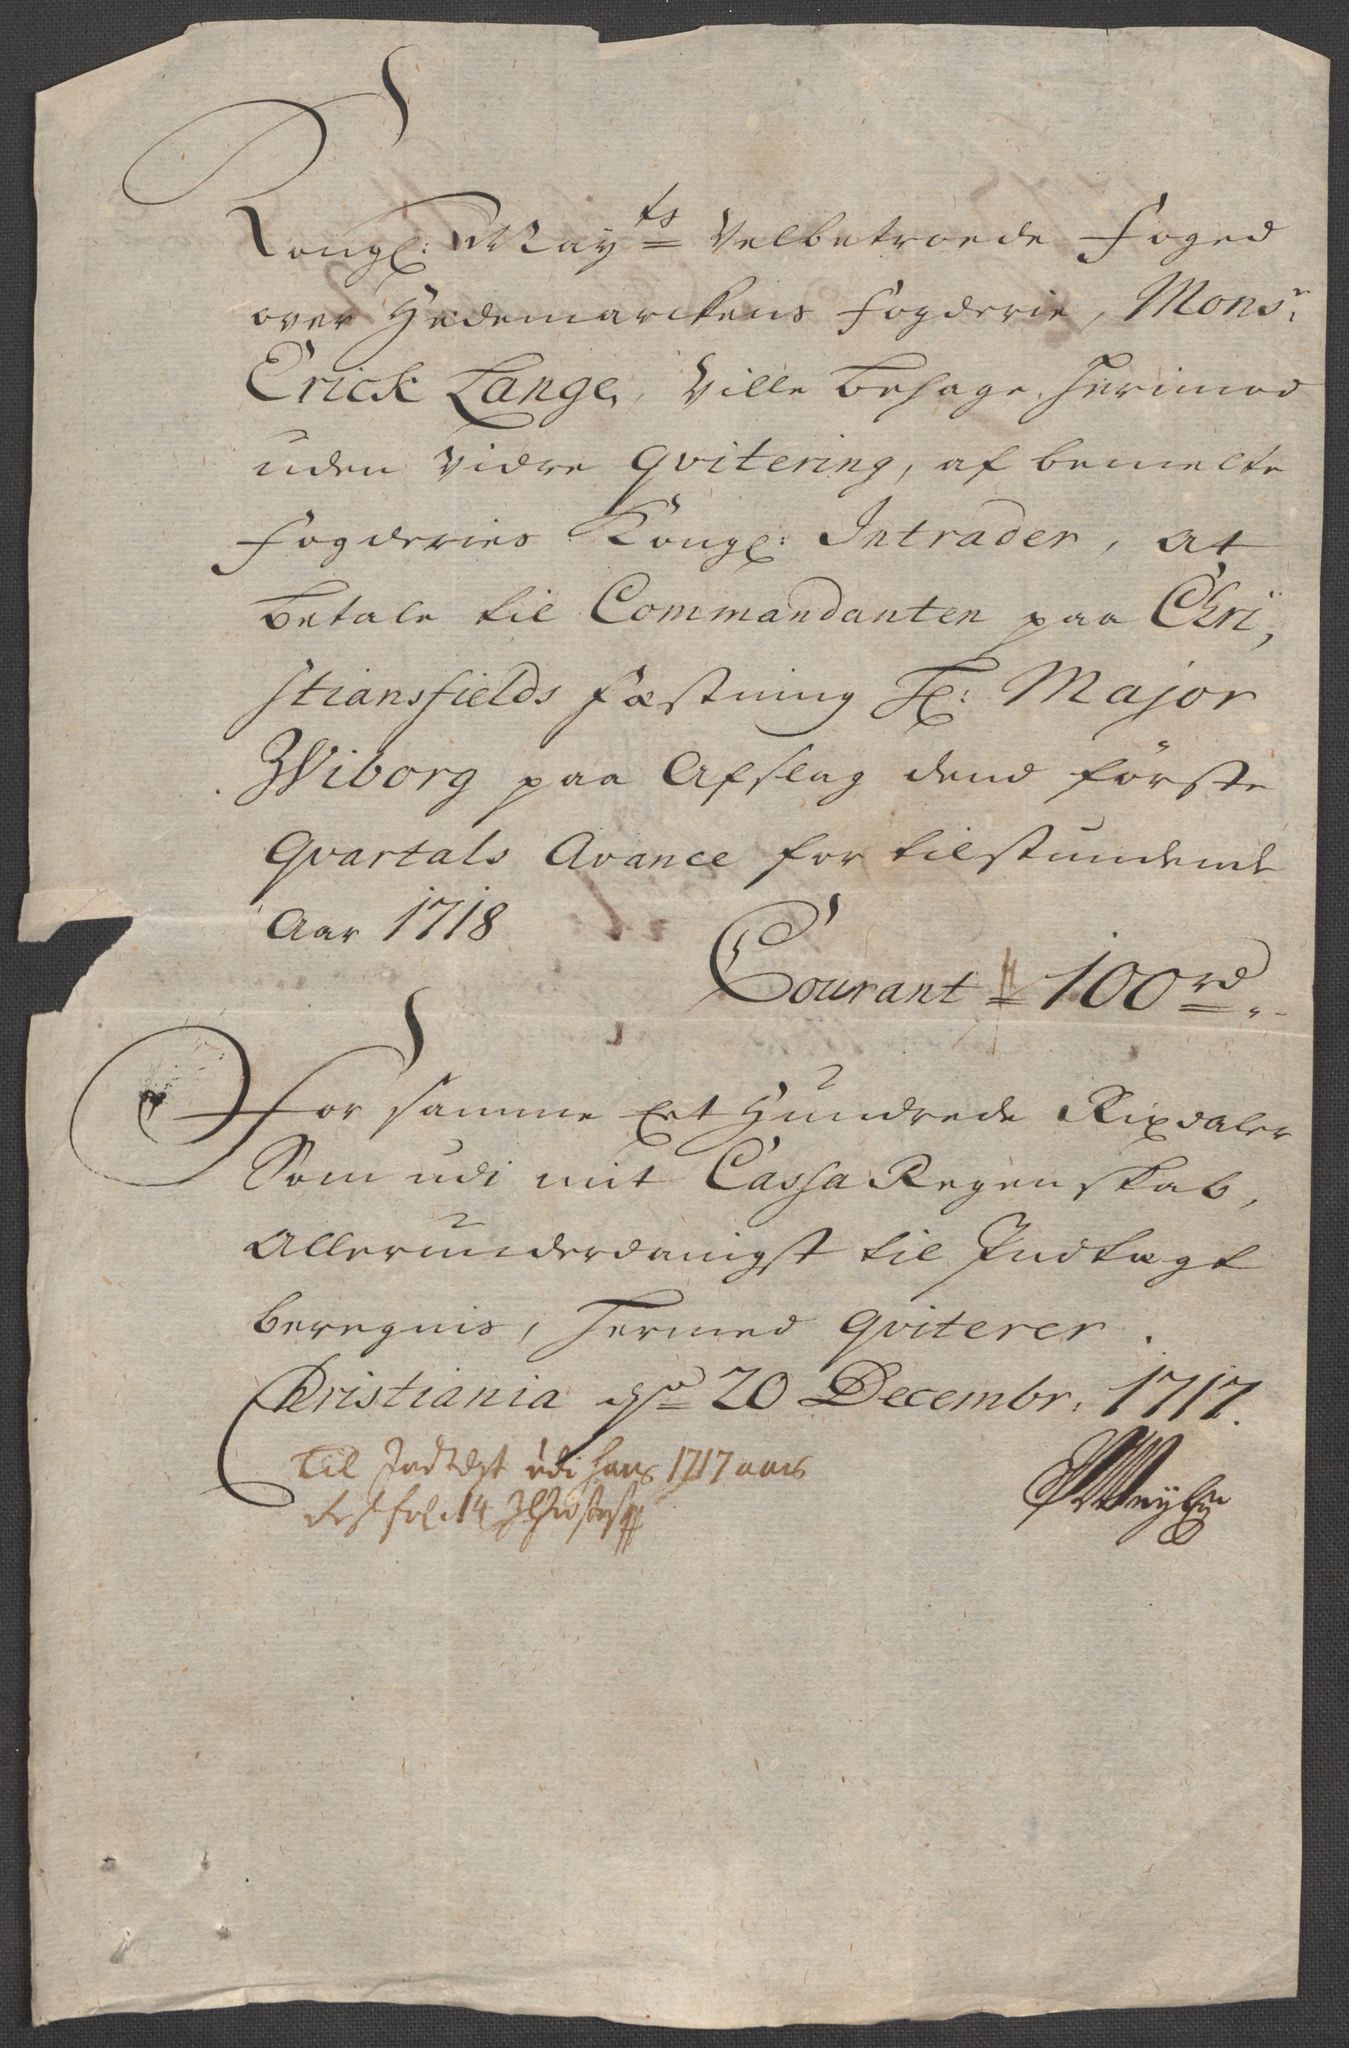 Kongl: May:ts Velbetroede Foged
over Hedemarckens Fogderie, Monsr:
Erick Lange, Ville behage herimod
uden Vidre qvitering, af bemelte
Fogderies Kongl: Intrader, at
betale til Commandanten paa Chri,
stiansfields Fæstning Hr: Major
Wiborg paa Afslag dend første
Qvartals Avance for tilstundende
Aar 1718
Courant 100 rd
For samme Eet Hundrede Rixdaler
Som udi mit Cassa Regenskab,
Allerunderdanigst til Indtægt
beregnis, hermed qviterer.
Christiania dn 20 Decembr: 1717.
Til Indtægt udi hans 1717 aars
fol: 14